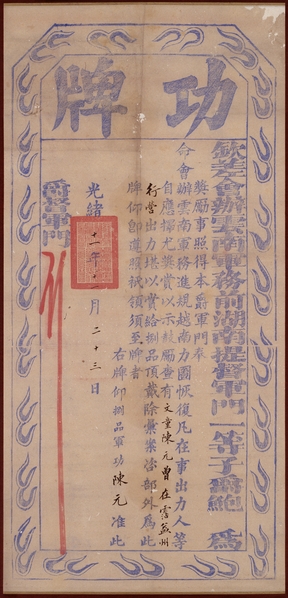 功牌
欽差會辦雲南軍務前湖南提督軍門一等子爵鮑 為
獎勵事照得本爵軍門奉
令會辦雲南軍務進規越南力圖恢復凡在事出力人等
自應擇尤獎賞以示鼓勵查有文童陳元曾在霑益州
行營出力堪以賞給捌品頂戴除彙案咨部外為此
牌仰即遵照祗領須至牌者
右牌仰捌品軍功陳元准此
光緒十一年月二十三日
爵督軍門